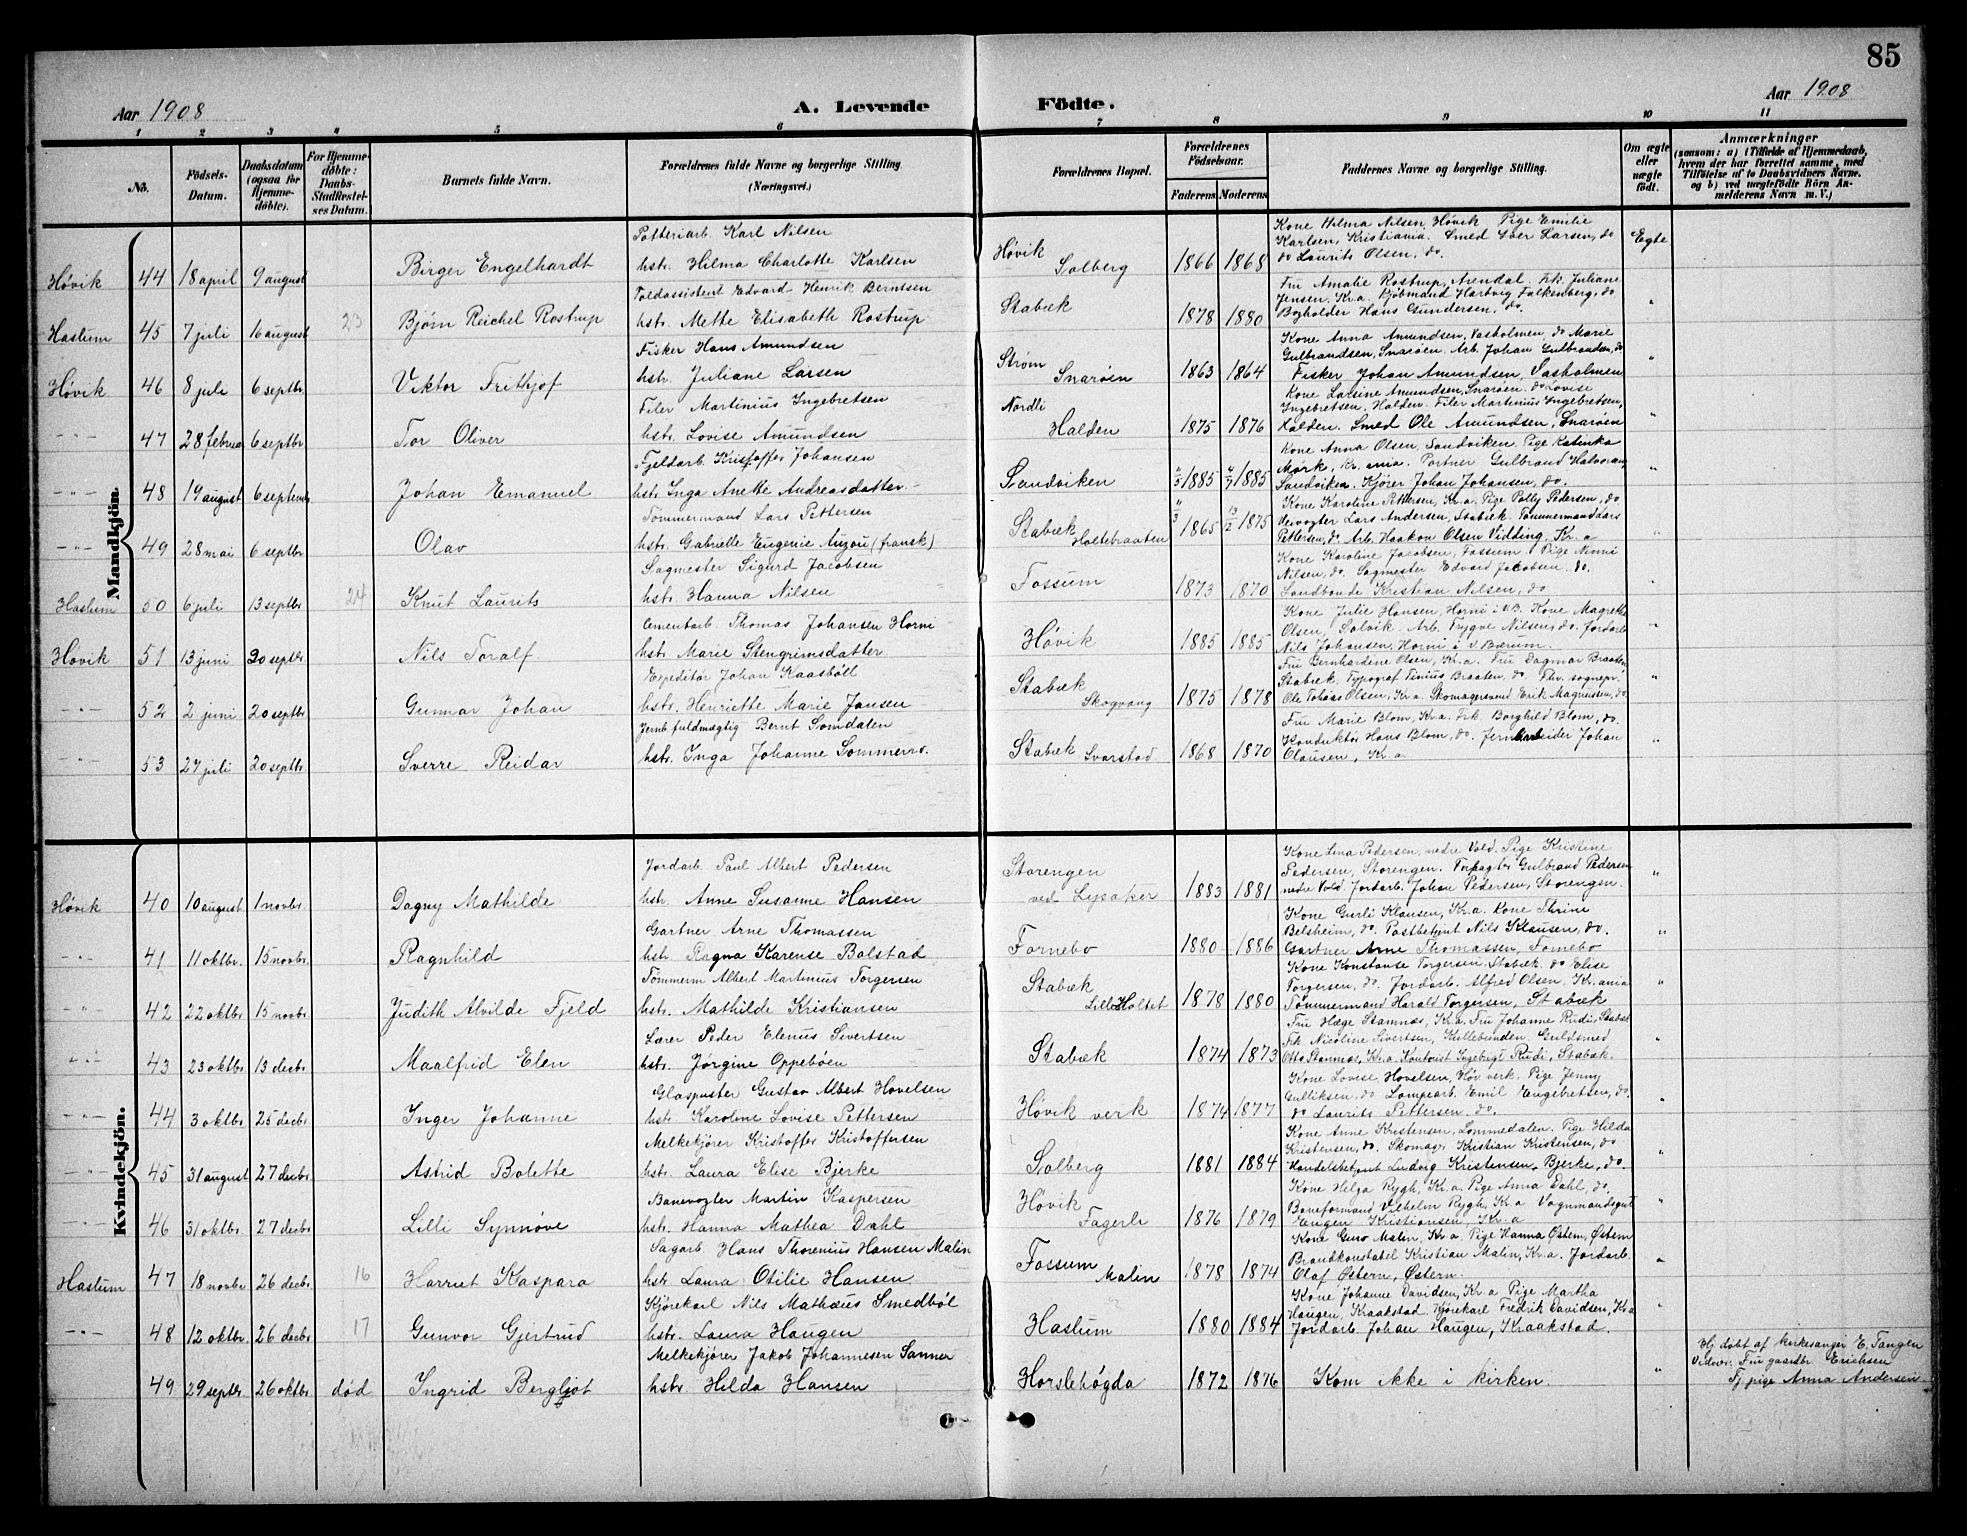 85
Aar 1908
A. Levende Födte.
Aar 1908
1 2 3 4 5 6 7 8 9 10 11
No.
Födsels-Datum.
Daabsdatum (ogsaa for Hjemme-döbte).
For Hjemme-döbte: Daabs-Stadfæstel-ses Datum.
Barnets fulde Navn.
Forældrenes fulde Navne og borgerlige Stilling (Næringsvei.)
Forældrenes Bopæl.
Forældrenes Födselsaar.
Faderens Moderens
Faddernes Navne og borgerlige Stilling.
Om ægte eller uægte födt.
Anmærkninger
(saasom: a) (Tilfælde af Hjemmedaab, hvem der har forrettet samme, med Tilföielse af to Daabsvidners Navne. og b) ved uægtefödte Börn An-melderens Navn m. V.)
Mandkjön.
Høvik 44 18 april 9 august Birger Engelhardt
Potteriarb. Karl Nilsen
hstr. Hilma Charlotte Karlsen
Høvik Solberg 1866 1868
Kone Hilma Nilsen, Høvik Pige Emilie
Karlsen, Kristiania. Smed Iver Larsen, do
do Laurits Olsen, do. Egte
Haslum 45 7 juli 16 august 23 Bjørn Reichel Rostrup
Toldassistent Edvard Henrik Berntsen
hstr. Mette Elisabeth Rostrup
Stabæk 1878 1880
Fru Amalie Rostrup, Arendal. Frk. Juliane
Jensen, Kr.a. Kjøbmand Hartvig Falkenberg, do
Bogholder Hans Gundersen, do. "
Høvik 46 8 juli 6 septbr. Viktor Frithjof
Fisker Hans Amundsen
hstr. Juliane Larsen
Strøm Snarøen 1863 1864
Kone Anna Amundsen, Vasholmen, do Marie
Gulbrandsen, Snarøen. Arb. Johan Gulbrandsen, do
Fisker Johan Amundsen, Vasholmen "
-"- 47 28 februar 6 septbr Tor Oliver
Filer Martinius Ingebretsen
hstr. Lovise Amundsen
Nordli Halden 1875 1876
Kone Larsine Amundsen, Snarøen, do Lovise
Ingebretsen, Halden. Filer Martinius Ingebretsen,
Halden. Smed Ole Amundsen, Snarøen "
-"- 48 19 august 6 septembr Johan Emanuel
Fjeldarb. Kristoffer Johansen
hstr. Inga Anette Andreasdatter
Sandviken 1885 1885
Kone Anna Olsen, Sandviken. Pige Katinka
Mørk, Kr.ania. Portner Gulbrand Halvorsen
Sandviken. Kjører Johan Johansen, do. "
-"- 49 28 mai 6 septbr Olav
Tømmermand Lars Pettersen
hstr. Gabrielle Eugenie Auzou (fransk)
Stabæk Holtebraaten 1865 13/12 1875
Kone Karoline Pettersen, Kr.a. Pige Polly Pedersen, do
Veivogter Lars Andersen, Stabæk. Tømmermand Lars
Pettersen, do. Arb. Haakon Olsen Vidding, Kr.a "
Haslum 50 6 juli 13 septbr 24 Knut Laurits
Sagmester Sigurd Jacobsen
hstr. Hanna Nilsen
Fossum 1873 1870
Kone Karoline Jacobsen, Fossum. Pige Ninni
Nilsen, do. Sagmester Edvard Jacobsen. do.
Landbonde Kristian Nilsen, do "
Høvik 51 13 juni 20 septbr Nils Toralf
Cementarb. Thomas Johansen Horni
hstr. Marie Stengrimsdatter
Høvik 1885 1885
Kone Julie Hansen, Horni i V.B. Kone Magrethe
Olsen, Solvik. Arb. Trygve Nilsen, do. Jordarb.
Nils Johansen, Horni i V. Bærum. "
-"- 52 2 juni 20 septbr Gunnar Johan
Expeditör Johan Kaasböll
hstr. Henriette Marie Jansen
Stabæk Skogvang 1875 1878
Fru Bernhardine Olsen, Kr.a. Fru Dagmar Braaten
Stabæk. Typograf Tinius Braaten, do. Fhv. sognepr.
Ole Tobias Olsen, Kr.a. Skomagersvend Erik Magnussen, do. "
-"- 53 27 juli 20 septbr Sverre Reidar
Jernb.fuldmægtig Bernt Somdalen
hstr. Inga Johanne Sommerro.
Stabæk Svarstad 1868 1870
Fru Marie Blom, Kr.a. Frk. Borghild Blom, do.
Konduktör Hans Blom, do. Jernarbeider Johan
Clausen, Kr.a "
Kvindekjön.
Høvik 40 10 august 1 novbr Dagny Mathilde
Jordarb. Paul Albert Pedersen
hstr. Anne Susanne Hansen
Storengen ved Lysaker 1883 1881
Kone Lina Pedersen, nedre Vold. Pige Kristine
Pedersen, Storengen. Forpagter Gulbrand Pedersen
nedre Vold. Jordarb. Johan Pedersen, Storengen. "
-"- 41 11 oktbr. 15 novbr Ragnhild
Gartner Arne Thomassen
hstr Ragna Karense Bolstad
Fornebo 1880 1886
Kone Gurli Klausen, Kr.a. Kone Thrine
Belsheim, do. Postbetjent Nils Klausen, do.
Gartner Arne Thomassen, Fornebo "
-"- 42 22 oktbr 15 novbr Judith Alvilde Fjeld
Tömmerm Albert Martinius Torgersen
hstr. Mathilde Kristiansen
Stabæk Lille Holtet 1878 1880
Kone Konstanse Torgersen Stabæk. do Elise
Torgersen, do. Jordarb. Alfred Olsen, Kr.ania
Tømmermand Harald Torgersen, Stabæk "
-"- 43 23 oktbr 13 decbr Maalfrid Elen
Lærer Peder Elenus Sivertsen
hstr. Jørgine Oppebøen
Stabæk 1874 1873
Fru Hæge Stamnæs, Kr.a. Fru Johanne Rudi, Stabæk
Frk Nicoline Sivertsen, Kullebunden. Guldsmed
Otto Stamnæs, Kr.a. Kontorist Ingebrigt Rudi, Stabæk. "
-"- 44 3 oktbr 25 decbr Inger Johanne
Glaspuster Gustav Albert Hovelsen
hstr. Karoline Lovise Pettersen
Høvik verk 1874 1877
Kone Lovise Hovelsen, Høv. verk. Pige Jenny
Gulliksen, do Lampearb. Emil Engebretsen, do.
do Laurits Pettersen, do. "
-"- 45 31 august 27 decbr Astrid Bolette
Melkekjører Kristoffer Kristoffersen
hstr. Laura Elise Bjerke
Solberg 1881 1884
Kone Anne Kristensen, Lommedalen. Pige Hilda
Kristensen, do. Skomager Kristian Kristensen, do
Handelsbetjent Ludvig Kristensen Bjerke, do. "
-"- 46 31 oktbr 27 decbr Lilli Synnøve
Banevogter Martin Kaspersen
hstr. Hanna Mathea Dahl
Høvik Fagerli 1876 1879
Kone Helga Rygh, Kr.a. Pige Anna Dahl, do.
Baneformand Vilhelm Rygh, Kr.a Vognmandsgut
Eugen Kristiansen, Kr.a "
Haslum 47 18 novbr 26 decbr 16 Harriet Kaspara
Sagarb. Hans Thorenius Hansen Malin
hstr. Laura Otilie Hansen
Fossum Malin 1878 1874
Kone Guro Malin, Kr.a Pige Hanna Østern, Østern
Brandkonstabel Kristian Malin, Kr.a. Jordarb.
Olaf Østern, Østern. "
-"- 48 12 oktbr. 26 decbr 17 Gunvor Gjertrud
Kjørekarl Nils Mathæus Smedbøl
hstr. Laura Haugen
Haslum 1880 1884
Kone Johanne Davidsen, Kr.a Pige Martha
Haugen, Kraakstad Kjørekarl Fredrik Davidsen, Kr.a
Jordarb. Johan Haugen, Kraakstad. "
49 29 septbr 26 oktbr død Ingrid Bergljot
Melkekjører Jakob Johannesen Sanner
hstr. Hilda Hansen
Horslehögda 1872 1876
Kom ikke i kirken. "
Hj. døbt af kirkesanger E. Tangen
Vidner: Fru gaardbr Erichsen
Tj. pige Anna Andersen